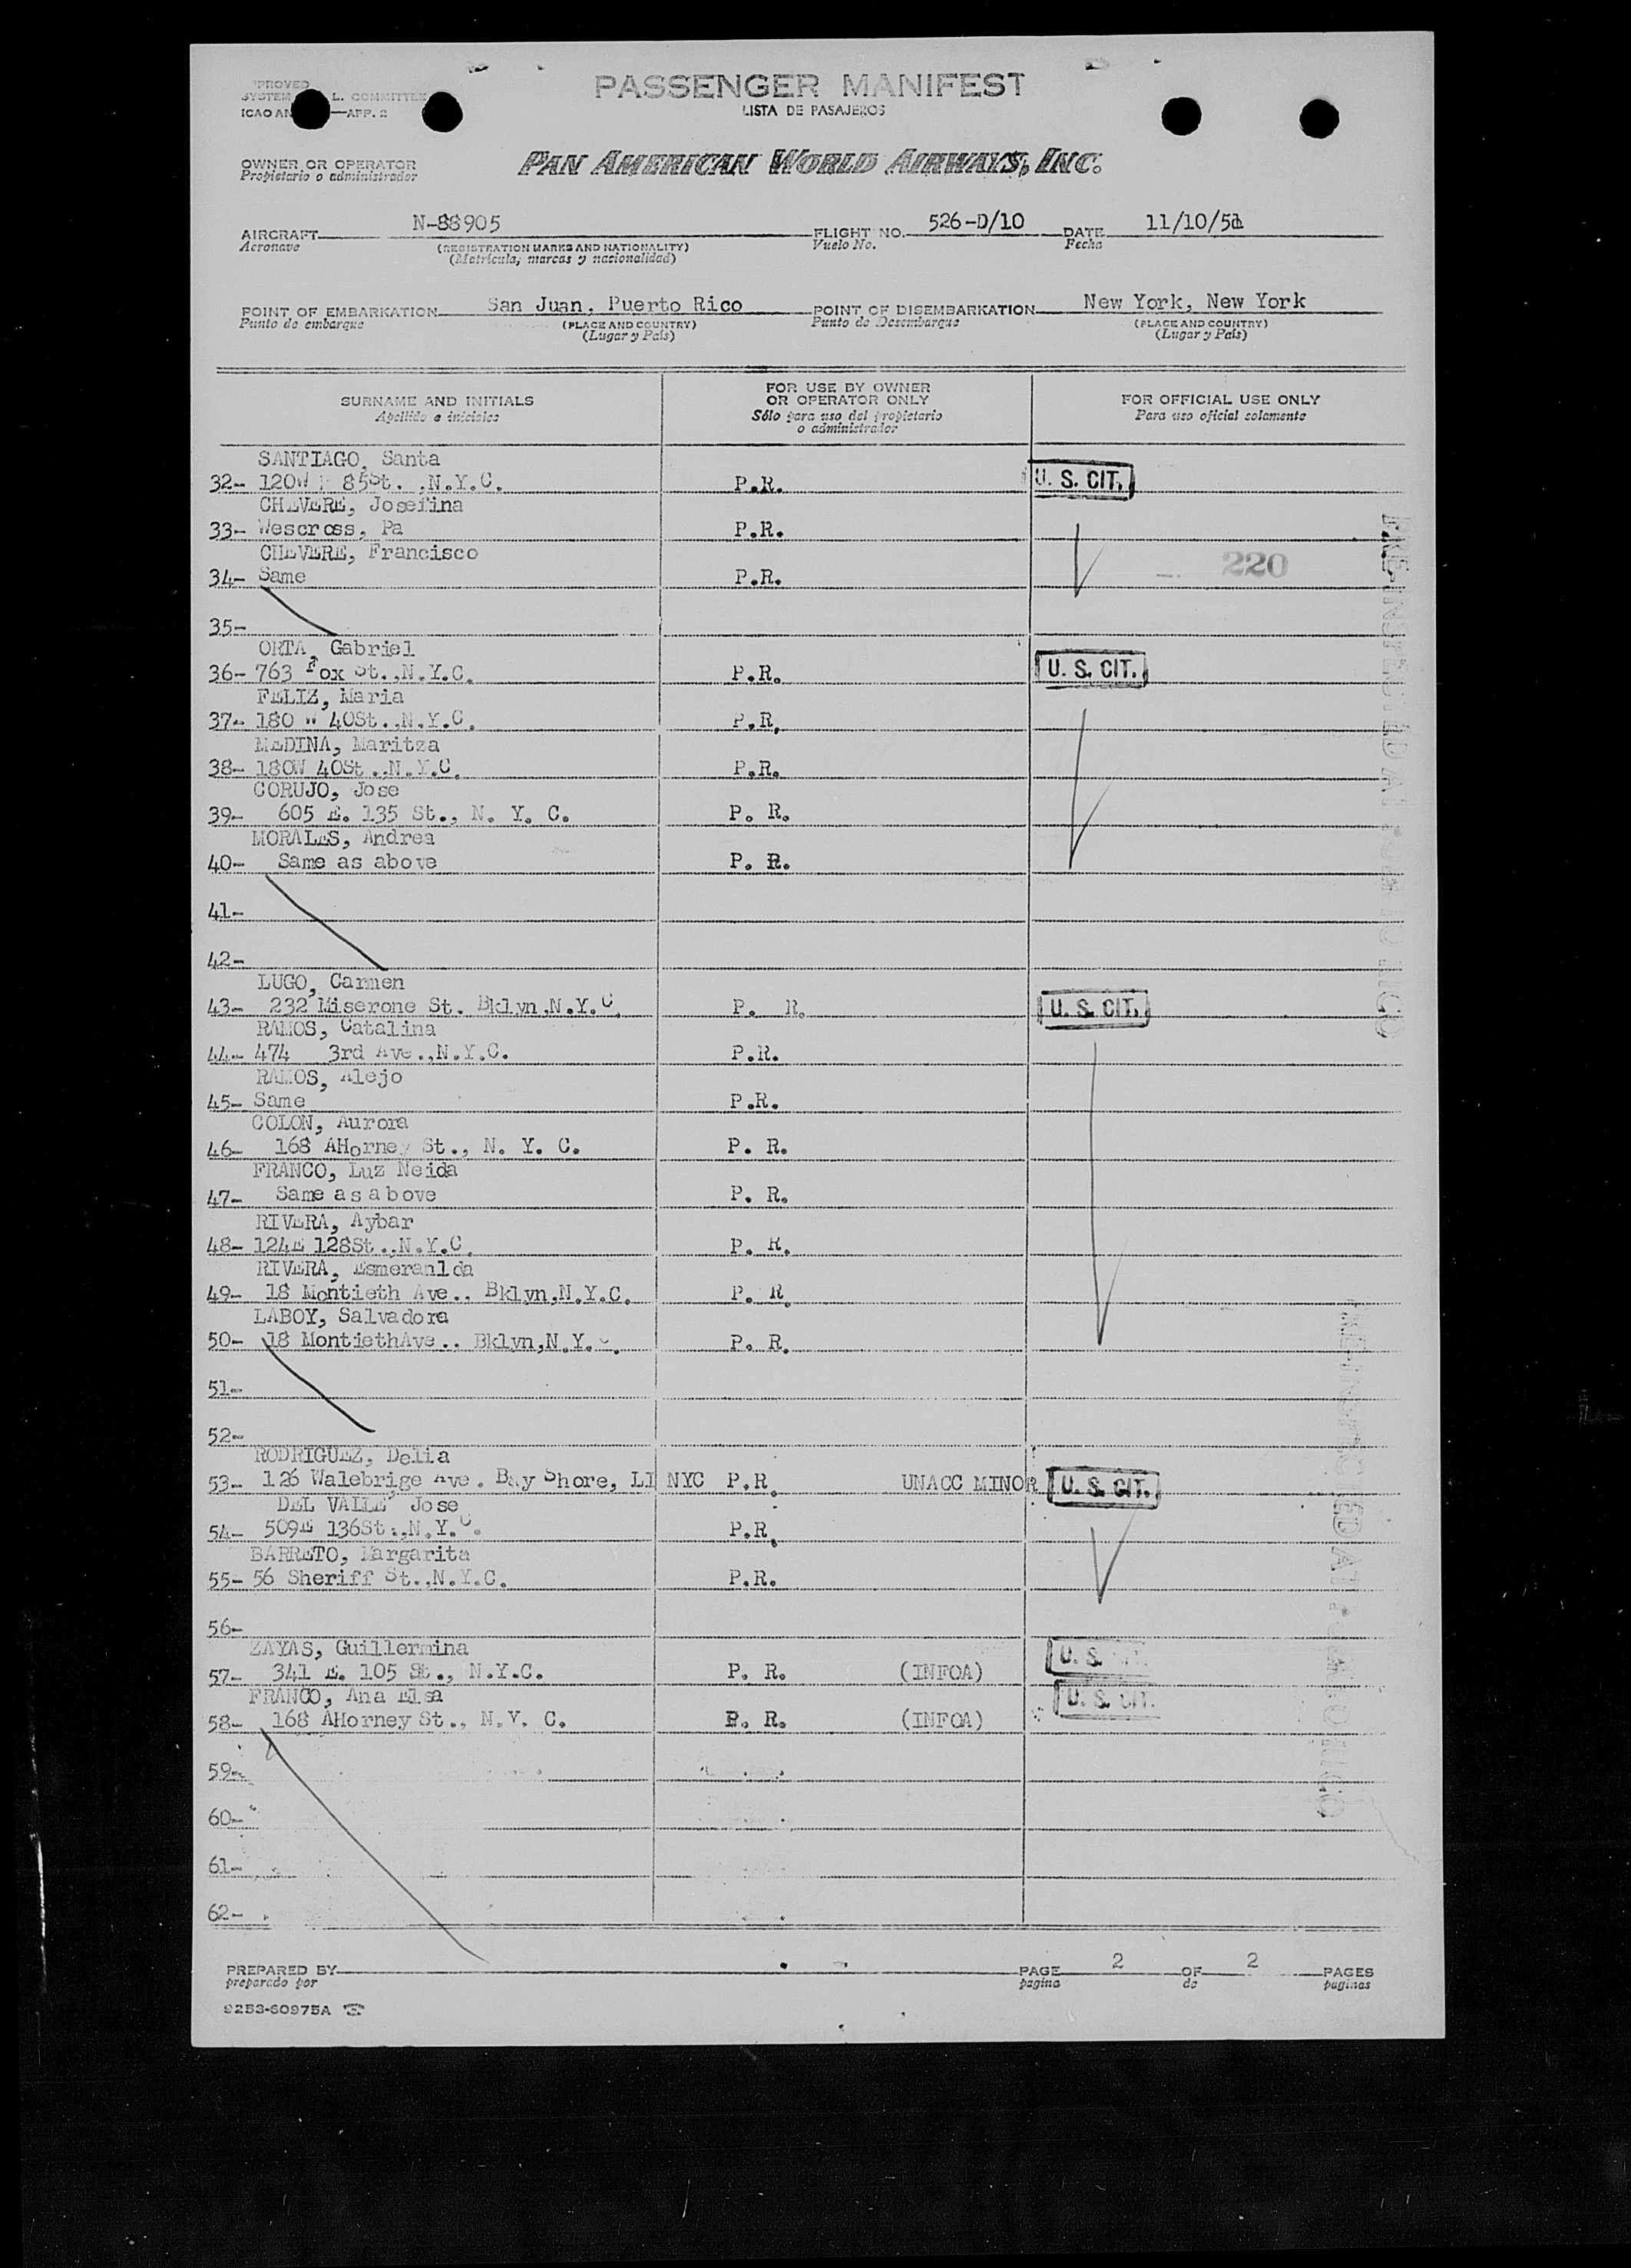 PASSENGER MANIFEST
LISTA DE PASAJEROS
PROVED
SYSTEM L. COMMITTEE
ICAO AN —APP. 2
OWNER OR OPERATOR
Propietario o administrador
PAN AMERICAN WORLD AIRWAYS, INC.
AIRCRAFT N-88905 FLIGHT NO. 526-D/10 DATE 11/10/51
Aeronave (REGISTRATION MARKS AND NATIONALITY) Vuelo No. Fecha
(Matrícula, marcas y nacionalidad)
POINT OF EMBARKATION San Juan, Puerto Rico POINT OF DISEMBARKATION New York, New York
Punto de embarque (PLACE AND COUNTRY) Punto de Desembarque (PLACE AND COUNTRY)
(Lugar y País) (Lugar y País)
SURNAME AND INITIALS FOR USE BY OWNER OR OPERATOR ONLY FOR OFFICIAL USE ONLY
Apellido e iniciales Sólo para uso del propietario o administrador Para uso oficial solamente
SANTIAGO, Santa
32- 120W 85St. ,N.Y.C. P.R. U. S. CIT.
CHEVERE, Josefina
33- Wescross, Pa P.R.
CHEVERE, Francisco
34- Same P.R. 220
35-
ORTA, Gabriel
36- 763 Fox St.,N.Y.C. P.R. U. S. CIT.
FELIZ, Maria
37- 180 W 40St.,N.Y.C. P.R.
MEDINA, Maritza
38- 180W 40St.,N.Y.C. P.R.
CORUJO, Jose
39- 605 E. 135 St., N. Y. C. P. R.
MORALES, Andrea
40- Same as above P. R.
41-
42-
LUGO, Carmen
43- 232 Miserone St. Bklyn,N.Y.C. P. R. U. S. CIT.
RAMOS, Catalina
44- 474 3rd Ave.,N.Y.C. P.R.
RAMOS, Alejo
45- Same P.R.
COLON, Aurora
46- 168 AHorney St., N. Y. C. P. R.
FRANCO, Luz Neida
47- Same as above P. R.
RIVERA, Aybar
48- 124E 128St.,N.Y.C. P. R.
RIVERA, Esmeranlda
49- 18 Montieth Ave., Bklyn,N.Y.C. P. R.
LABOY, Salvadora
50- 18 MontiethAve., Bklyn,N.Y.C. P. R.
51-
52-
RODRIGUEZ, Delia
53- 126 Walebrige Ave. Bay Shore, LI NYC P.R. UNACC MINOR U. S. CIT.
DEL VALLE Jose
54- 509E 136St.,N.Y.C. P.R.
BARRETO, Margarita
55- 56 Sheriff St.,N.Y.C. P.R.
56-
ZAYAS, Guillermina
57- 341 E. 105 St., N.Y.C. P. R. (INFOA) U. S.
FRANCO, Ana Elsa
58- 168 AHorney St., N.Y. C. P. R. (INFOA) U. S. CIT.
59-
60-
61-
62-
PRE-INSPECTED AT
PRE-INSPECTED AT
PREPARED BY PAGE 2 OF 2 PAGES
preparado por pagina de paginas
9253-60975A